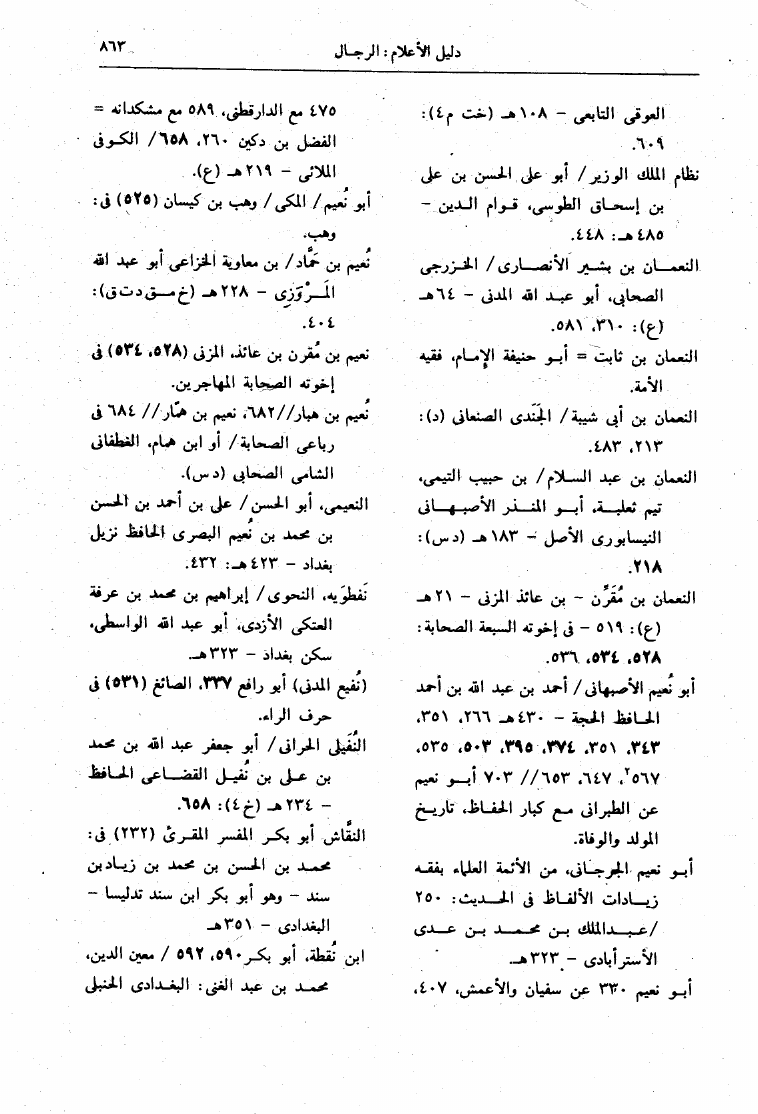 دليل الأعلام : الرجال
٨٦٣
العوقى التابعى – ١٠٨ هـ (خت م ٤) :
٦٠٩.
نظام الملك الوزير / أبو على الحسن بن على
بن إسحاق الطوسى، قوام الدين –
٤٨٥ هـ : ٤٤٨.
النعمان بن بشير الأنصارى / الخزرجى
الصحابى، أبو عبد الله المدنى – ٦٤ هـ
(ع) : ٣١٠، ٥٨١.
النعمان بن ثابت = أبو حنيفة الإمام، فقيه
الأمة.
النعمان بن أبى شيبة / الجَنَدى الصنعانى (د) :
٢١٣، ٤٨٣.
النعمان بن عبد السلام / بن حبيب التيمى،
تيم ثعلبة، أبو المنذر الأصبهانى
النيسابورى الأصل – ١٨٣ هـ (د س) :
٢١٨.
النعمان بن مُقَرِّن – بن عائذ المزنى – ٢١ هـ
(ع) : ٥١٩ – فى إخوته السبعة الصحابة :
٥٢٨، ٥٣٤، ٥٣٦.
أبو نُعيم الأصبهانى / أحمد بن عبد الله بن أحمد
الحافظ الحجة – ٤٣٠ هـ ٢٦٦، ٣٥١،
٣٤٣، ٣٥١، ٣٧٤، ٣٩٥، ٥٠٣، ٥٣٥،
٥٦٧٢، ٦٤٧، ٦٥٣ // ٧٠٣ أبو نعيم
عن الطبرانى مع كبار الحفاظ، تاريخ
المولد والوفاة.
أبو نعيم الجرجانى، من الأئمة العلماء بفقه
زيادات الألفاظ فى الحديث : ٢٥٠
/ عبدالملك بن محمد بن عدى
الأسترأبادى – ٣٢٣ هـ.
أبو نعيم ٣٣٠ عن سفيان والأعمش، ٤٠٧،
٤٧٥ مع الدارقطنى، ٥٨٩ مع مشكدانه =
الفضل بن دكين ٢٦٠، ٦٥٨ / الكوفى
الملائى – ٢١٩ هـ (ع).
أبو نُعيم / المكى / وهب بن كيسان (٥٢٥) فى :
وهب.
نُعيم بن حَمَّاد / بن معاوية الخزاعى أبو عبد الله
المَرْوَزِى – ٢٢٨ هـ (خ مق د ت ق) :
٤٠٤.
نعيم بن مُقرن بن عائذ، المزنى (٥٢٨، ٥٣٤) فى
إخوته الصحابة المهاجرين.
نُعيم بن هبار // ٦٨٢، نعيم بن همّار // ٦٨٤ فى
رباعى الصحابة / أو ابن همام، الغطفانى
الشامى الصحابى (د س).
النعيمى، أبو الحسن / على بن أحمد بن الحسن
بن محمد بن نُعيم البصرى الحافظ نزيل
بغداد – ٤٢٣ هـ : ٤٣٢.
نَفطوَيه، النحوى / إبراهيم بن محمد بن عرفة
العتكى الأزدى، أبو عبد الله الواسطى،
سكن بغداد – ٣٢٣ هـ
(نُفيع المدنى) أبو رافع ٣٣٧، الصائغ (٥٣١) فى
حرف الراء.
النُّفَيلى الحرانى / أبو جعفر عبد الله بن محمد
بن على بن نُفيل القضاعى الحافظ
– ٢٣٤ هـ (خ ٤) : ٦٥٨.
النقَّاش أبو بكر المفسر المقرئ (٢٣٢) فى :
محمد بن الحسن بن محمد بن زياد بن
سند – وهو أبو بكر ابن سند تدليسا –
البغدادى – ٣٥١ هـ
ابن نُقطة، أبو بكر ٥٩٠، ٥٩٢ / معين الدين،
محمد بن عبد الغنى : البغدادى الحنبلى